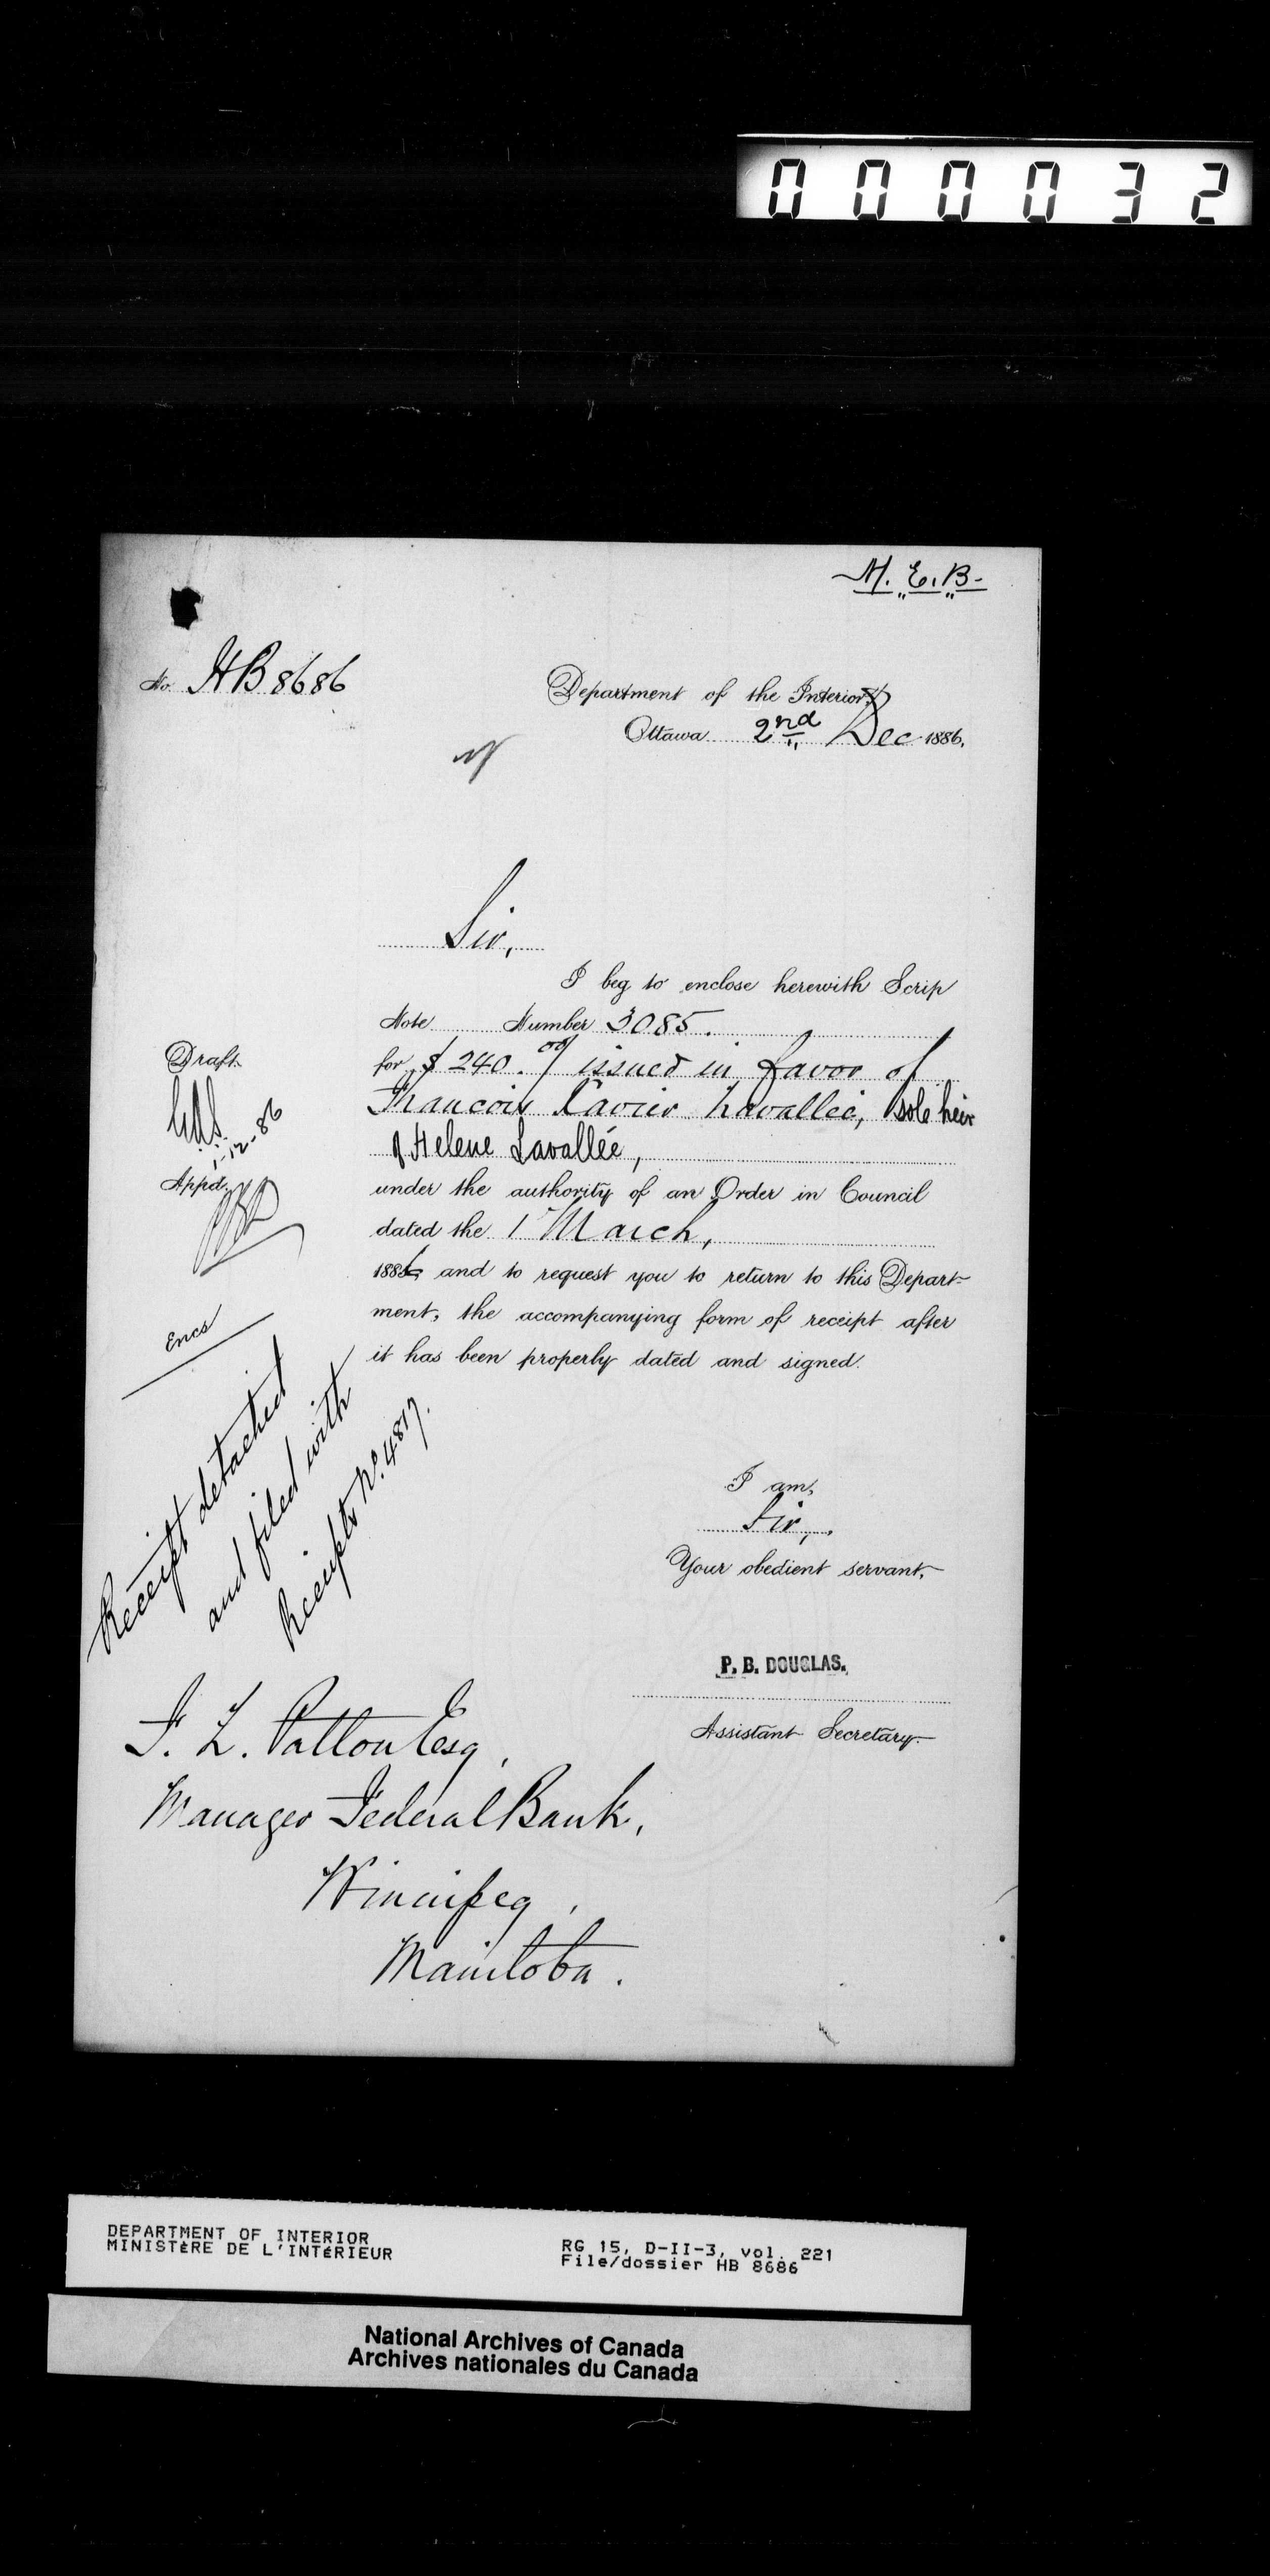 000032
M. E. B.
No. HB 8686
Department of the Interior,
Ottawa 2nd Dec 1886.
Sir,
I beg to enclose herewith Scrip
Note Number 3085.
for $240.00/ issued in favor of
Francois Xavier Lavallée, sole heir
of Helene Lavallée,
under the authority of an Order in Council
dated the 1st March,
1886 and to request you to return to this Depart-
ment, the accompanying form of receipt after
it has been properly dated and signed.
Draft
1-12-86
Appd.
Encs
Receipt detached
and filed with
Receipts No. 4817.
I am,
Sir,
Your obedient servant,
P. B. DOUGLAS.
Assistant Secretary.
F. L. Patton Esq,
Manager Federal Bank,
Winnipeg,
Manitoba.
DEPARTMENT OF INTERIOR
MINISTÈRE DE L'INTÉRIEUR
RG 15, D-II-3, vol. 221
File/dossier HB 8686
National Archives of Canada
Archives nationales du Canada